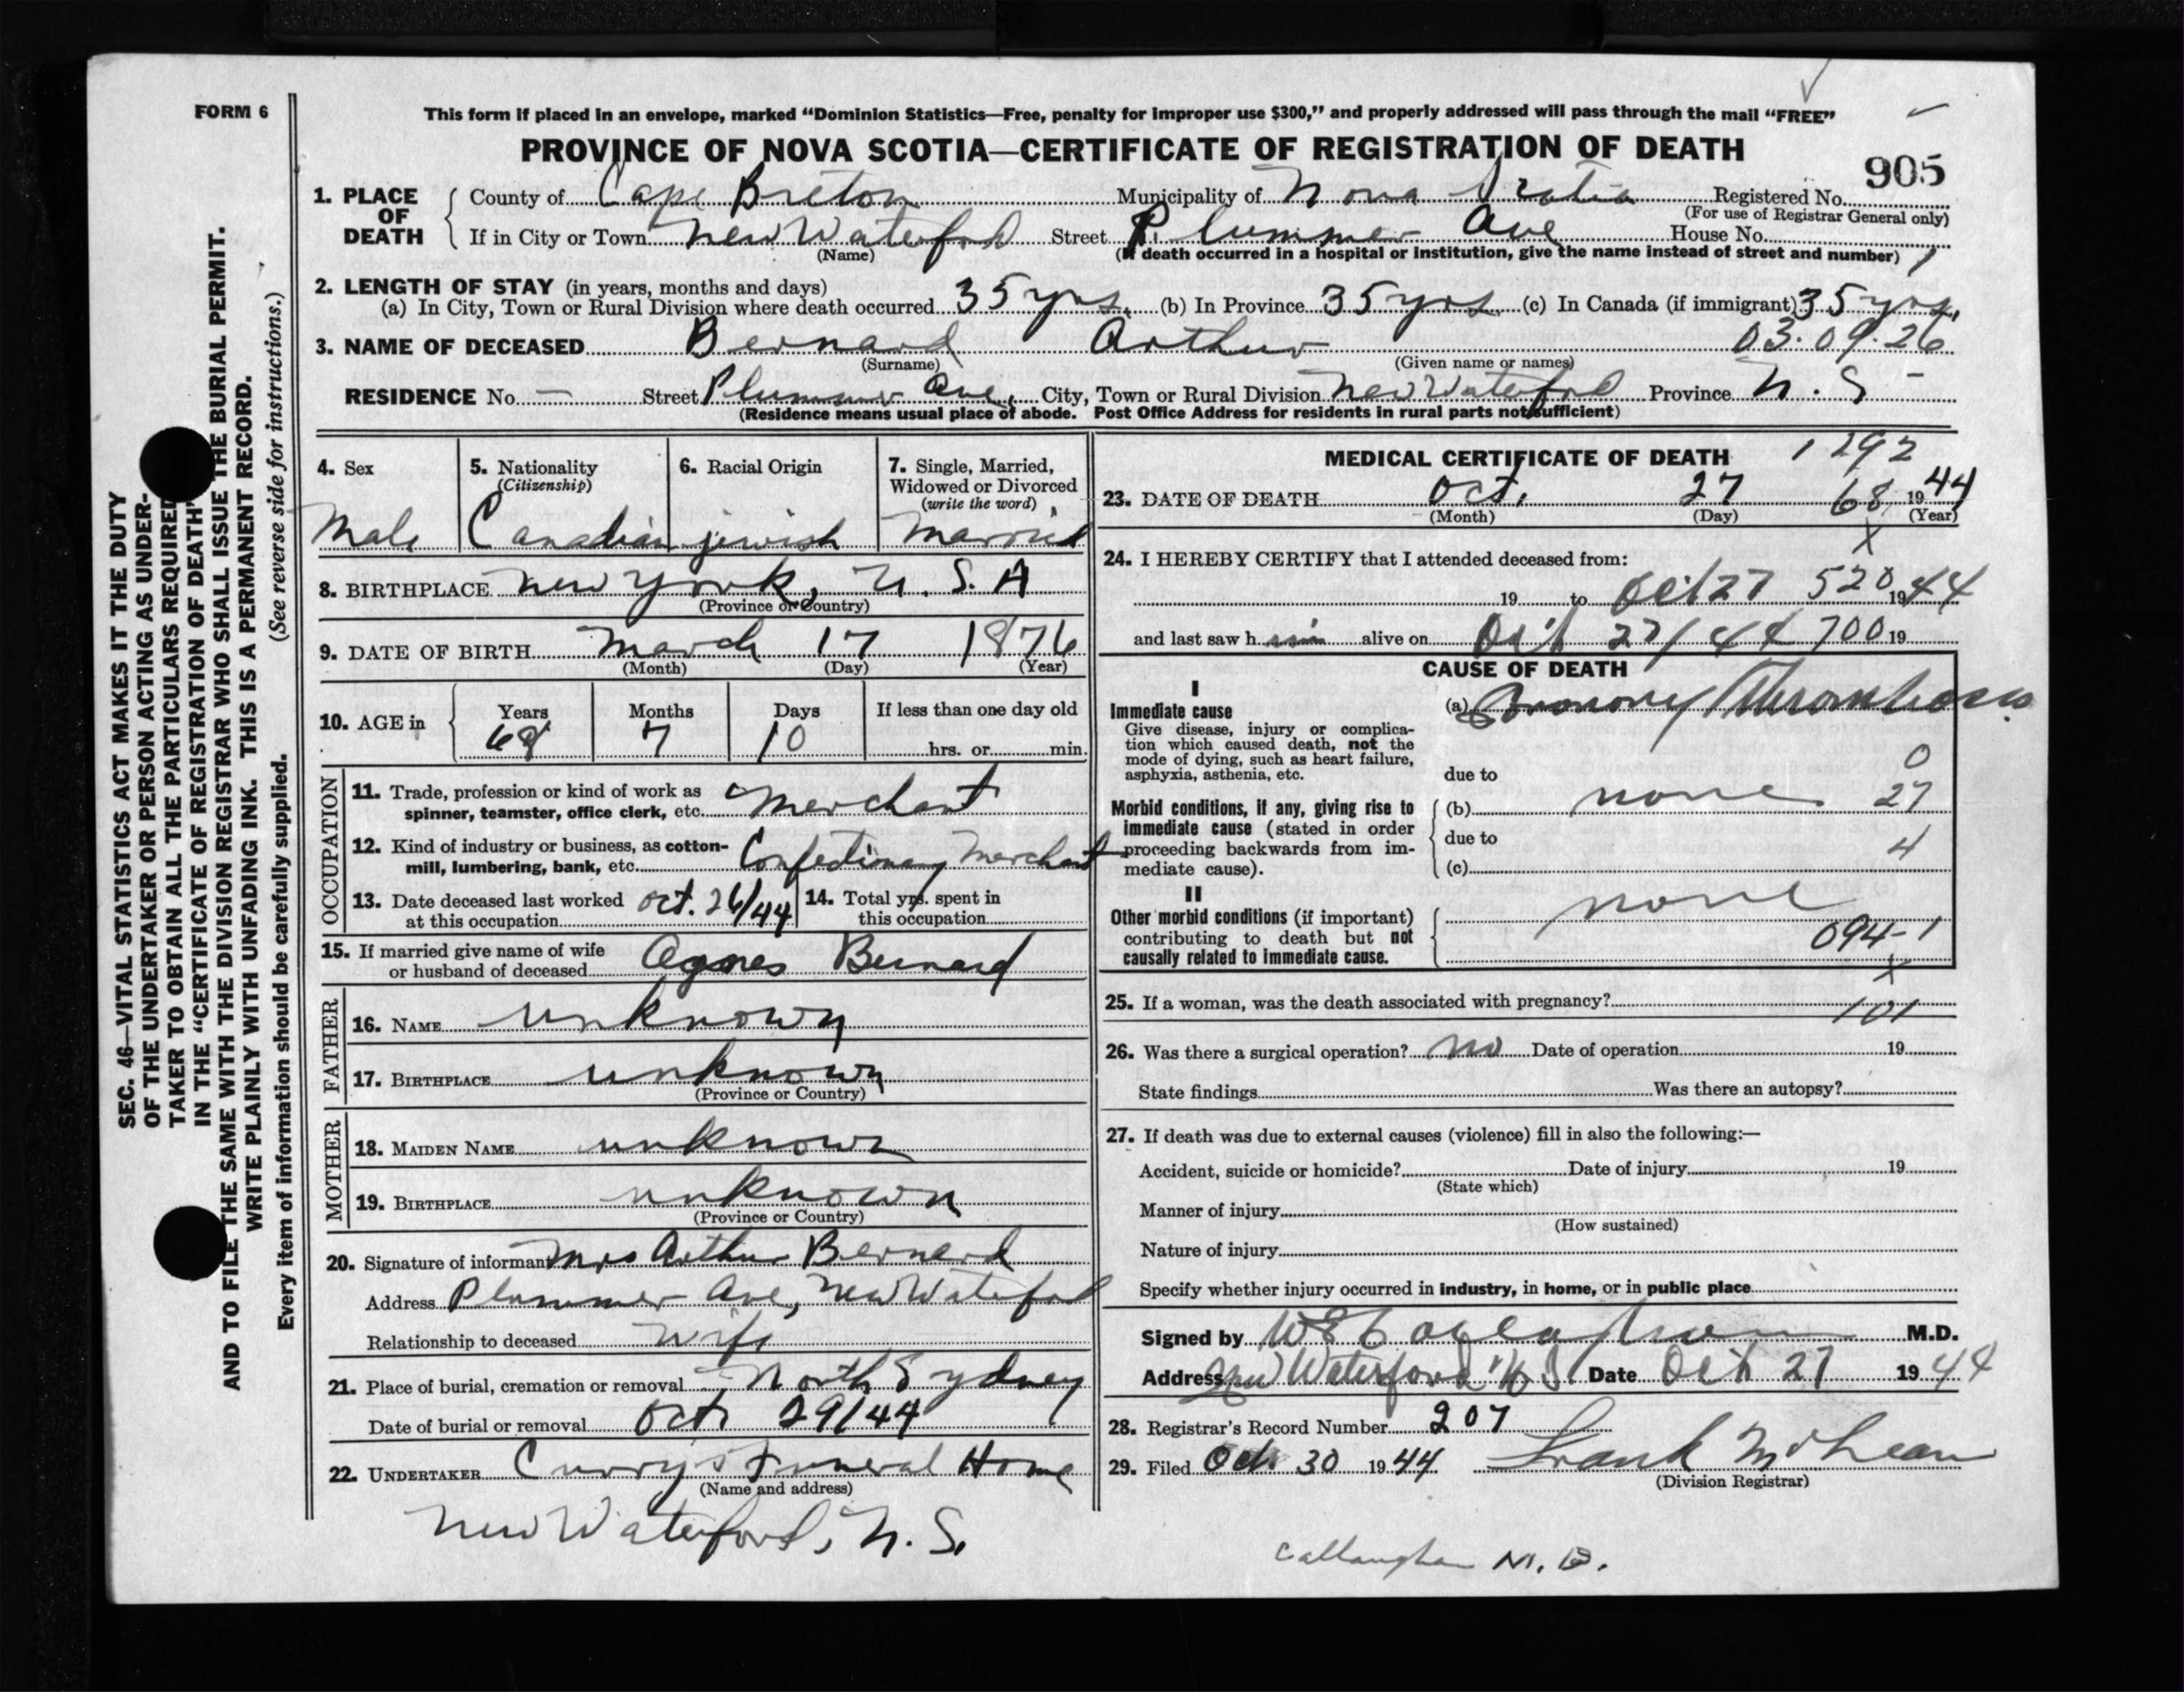 FORM 6
This form if placed in an envelope, marked “Dominion Statistics—Free, penalty for improper use $300,” and properly addressed will pass through the mail “FREE”
PROVINCE OF NOVA SCOTIA—CERTIFICATE OF REGISTRATION OF DEATH
905
1. PLACE OF DEATH
County of Cape Breton Municipality of Nova Scotia Registered No.
(For use of Registrar General only)
If in City or Town New Waterford Street Plummer Ave House No.
(Name) (If death occurred in a hospital or institution, give the name instead of street and number) 1
2. LENGTH OF STAY (in years, months and days)
(a) In City, Town or Rural Division where death occurred 35 yrs. (b) In Province 35 yrs (c) In Canada (if immigrant) 35 yrs.
3. NAME OF DECEASED Bernard Arthur 03.09.26
(Surname) (Given name or names)
RESIDENCE No. — Street Plummer Ave, City, Town or Rural Division New Waterford Province N. S —
(Residence means usual place of abode. Post Office Address for residents in rural parts not sufficient)
4. Sex
Male
5. Nationality
(Citizenship)
Canadian
6. Racial Origin
jewish
7. Single, Married, Widowed or Divorced
(write the word)
Married
8. BIRTHPLACE New York, U. S. A
(Province or Country)
9. DATE OF BIRTH March 17 1876
(Month) (Day) (Year)
10. AGE in
Years Months Days If less than one day old
68 7 10 hrs. or min.
OCCUPATION
11. Trade, profession or kind of work as
spinner, teamster, office clerk, etc. Merchant
12. Kind of industry or business, as cotton-
mill, lumbering, bank, etc. Confectionary Merchant
13. Date deceased last worked
at this occupation Oct. 26/44
14. Total yrs. spent in
this occupation
15. If married give name of wife
or husband of deceased Agnes Bernard
FATHER
16. NAME unknown
17. BIRTHPLACE unknown
(Province or Country)
MOTHER
18. MAIDEN NAME unknown
19. BIRTHPLACE unknown
(Province or Country)
20. Signature of informant Mrs Arthur Bernard
Address Plummer Ave, New Waterford
Relationship to deceased Wife
21. Place of burial, cremation or removal North Sydney
Date of burial or removal Oct. 29/44
22. UNDERTAKER Curry's Funeral Home
(Name and address)
New Waterford, N. S.
MEDICAL CERTIFICATE OF DEATH 1292
23. DATE OF DEATH Oct. 27 68 1944
(Month) (Day) (Year)
X
24. I HEREBY CERTIFY that I attended deceased from:
19 to Oct 27 520 1944
and last saw h im alive on Oct 27/44 700 19
CAUSE OF DEATH
I
Immediate cause
Give disease, injury or complica-
tion which caused death, not the
mode of dying, such as heart failure,
asphyxia, asthenia, etc.
(a) Coronary Thrombosis
0
due to
Morbid conditions, if any, giving rise to
immediate cause (stated in order
proceeding backwards from im-
mediate cause).
(b) none 27
due to 4
(c)
II
Other morbid conditions (if important)
contributing to death but not
causally related to immediate cause.
none
094-1
X
25. If a woman, was the death associated with pregnancy?
101
26. Was there a surgical operation? no Date of operation 19
State findings Was there an autopsy?
27. If death was due to external causes (violence) fill in also the following:—
Accident, suicide or homicide? Date of injury 19
(State which)
Manner of injury
(How sustained)
Nature of injury
Specify whether injury occurred in industry, in home, or in public place
Signed by M.D.
Address New Waterford N S. Date Oct 27 1944
28. Registrar's Record Number 207
29. Filed Oct 30 1944 Frank McLean
(Division Registrar)
Callaughan M. D.
SEC. 46—VITAL STATISTICS ACT MAKES IT THE DUTY
OF THE UNDERTAKER OR PERSON ACTING AS UNDER-
TAKER TO OBTAIN ALL THE PARTICULARS REQUIRED
IN THE “CERTIFICATE OF REGISTRATION OF DEATH”
AND TO FILE THE SAME WITH THE DIVISION REGISTRAR WHO SHALL ISSUE THE BURIAL PERMIT.
WRITE PLAINLY WITH UNFADING INK. THIS IS A PERMANENT RECORD.
Every item of information should be carefully supplied. (See reverse side for instructions.)